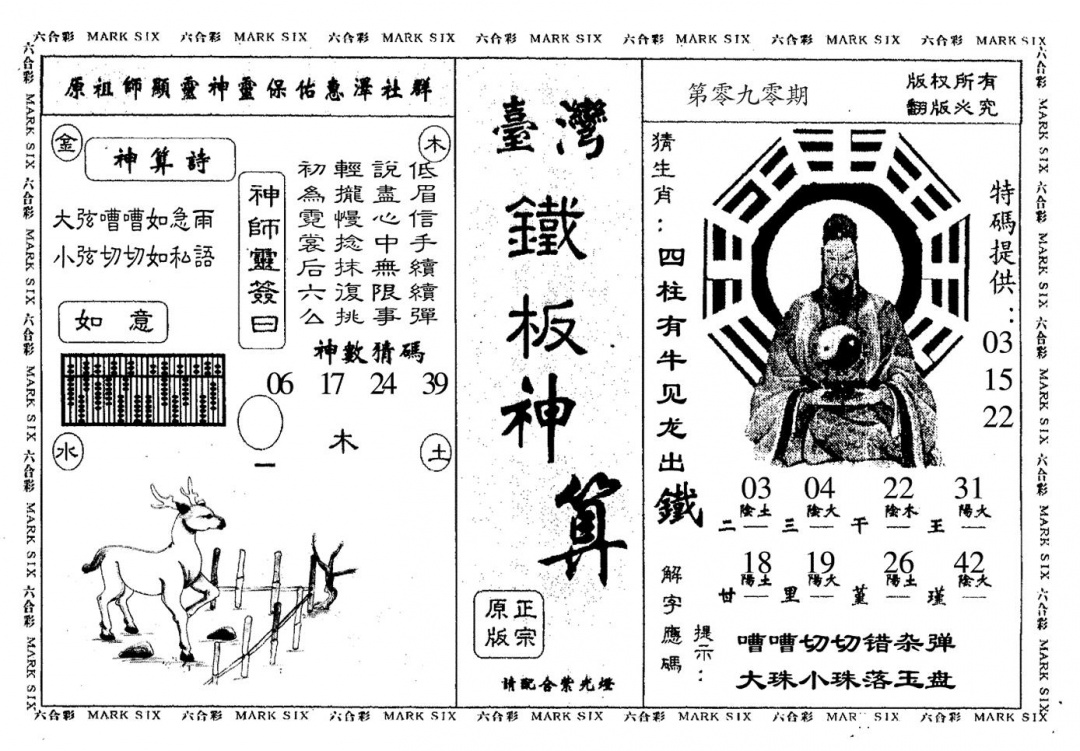 六合彩 MARK SIX 六合彩 MARK SIX 六合彩 MARK SIX 六合彩 MARK SIX 六合彩 MARK SIX 六合彩 MARK SIX 六合彩 MARK SIX
六合彩 MARK SIX 六合彩 MARK SIX 六合彩 MARK SIX 六合彩 MARK SIX 六合彩 MARK SIX
原祖師顯靈神靈保佑惠澤社群
金
木
神算詩
大弦嘈嘈如急雨
小弦切切如私語
如意
神師靈簽曰
低眉信手續續彈
說盡心中無限事
輕攏慢捻抹復挑
初為霓裳后六么
神數猜碼
06 17 24 39
水
木
土
臺灣
鐵板神算
正宗
原版
請配合紫光燈
第零九零期
版权所有
翻版必究
猜生肖：四柱有牛见龙出鐵
特碼提供：
03
15
22
03 04 22 31
陰土 陰火 陰木 陽火
二 三 干 王
18 19 26 42
陽土 陽火 陽土 陰火
甘 里 堇 瑾
解字應碼
提示：
嘈嘈切切错杂弹
大珠小珠落玉盘
六合彩 MARK SIX 六合彩 MARK SIX 六合彩 MARK SIX 六合彩 MARK SIX 六合彩 MARK SIX
六合彩 MARK SIX 六合彩 MARK SIX 六合彩 MARK SIX 六合彩 MARK SIX 六合彩 MARK SIX 六合彩 MARK SIX 六合彩 MARK SIX